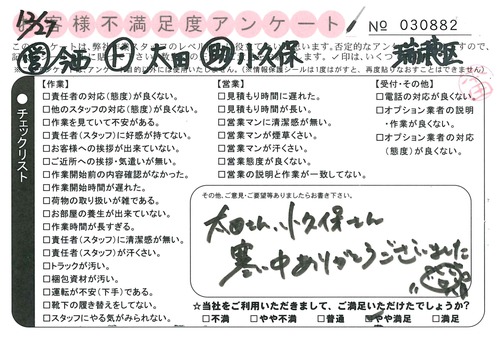 12/27
お客様不満足度アンケート
№ 030882
営 今西 ド 太田 助 小久保 瑞穂区
チェックリスト
【作業】
□責任者の対応(態度)が良くない。
□他のスタッフの対応(態度)が良くない。
□作業を見ていて不安がある。
□責任者(スタッフ)に好感が持てない。
□お客様への挨拶が出来ていない。
□ご近所への挨拶・気遣いが無い。
□作業開始前の内容確認がなかった。
□作業開始時間が遅れた。
□荷物の取り扱いが雑である。
□お部屋の養生が出来ていない。
□作業時間が長すぎる。
□責任者(スタッフ)に清潔感が無い。
□責任者(スタッフ)が汗くさい。
□トラックが汚い。
□梱包資材が汚い。
□運転が不安(下手)である。
□靴下の履き替えをしてない。
□スタッフにやる気がみられない。
【営業】
□見積もり時間に遅れた。
□見積もり時間が長い。
□営業マンに清潔感が無い。
□営業マンが煙草くさい。
□営業マンが汗くさい。
□営業態度が良くない。
□営業の説明と作業が一致してない。
【受付・その他】
□電話の対応が良くない。
□オプション業者の説明・作業が良くない。
□オプション業者の対応(態度)が良くない。
その他、ご意見・ご要望等ありましたらお書き下さい。
太田さん、小久保さん
寒い中ありがとうございました
☆当社をご利用いただきまして、ご満足いただけたでしょうか?
□不満 □やや不満 □普通 □やや満足 □満足